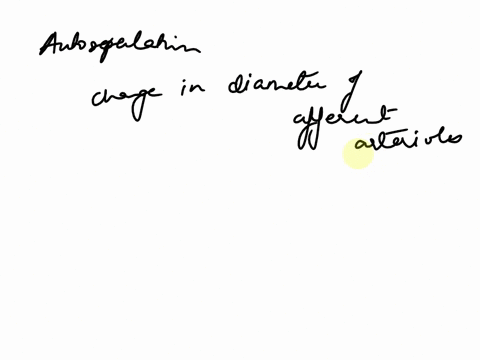 Autoregulation
change in diameter of
afferent
arterioles